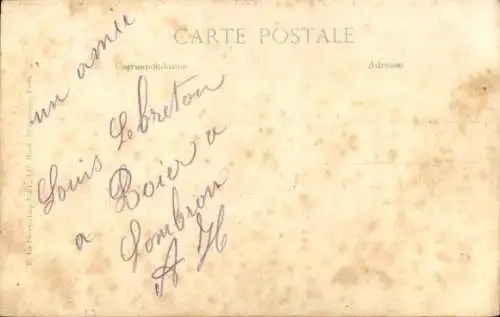 CARTE POSTALE
Correspondance
Adresse
un amie
Louis Lebreton
a Roier a
Lombron
A H